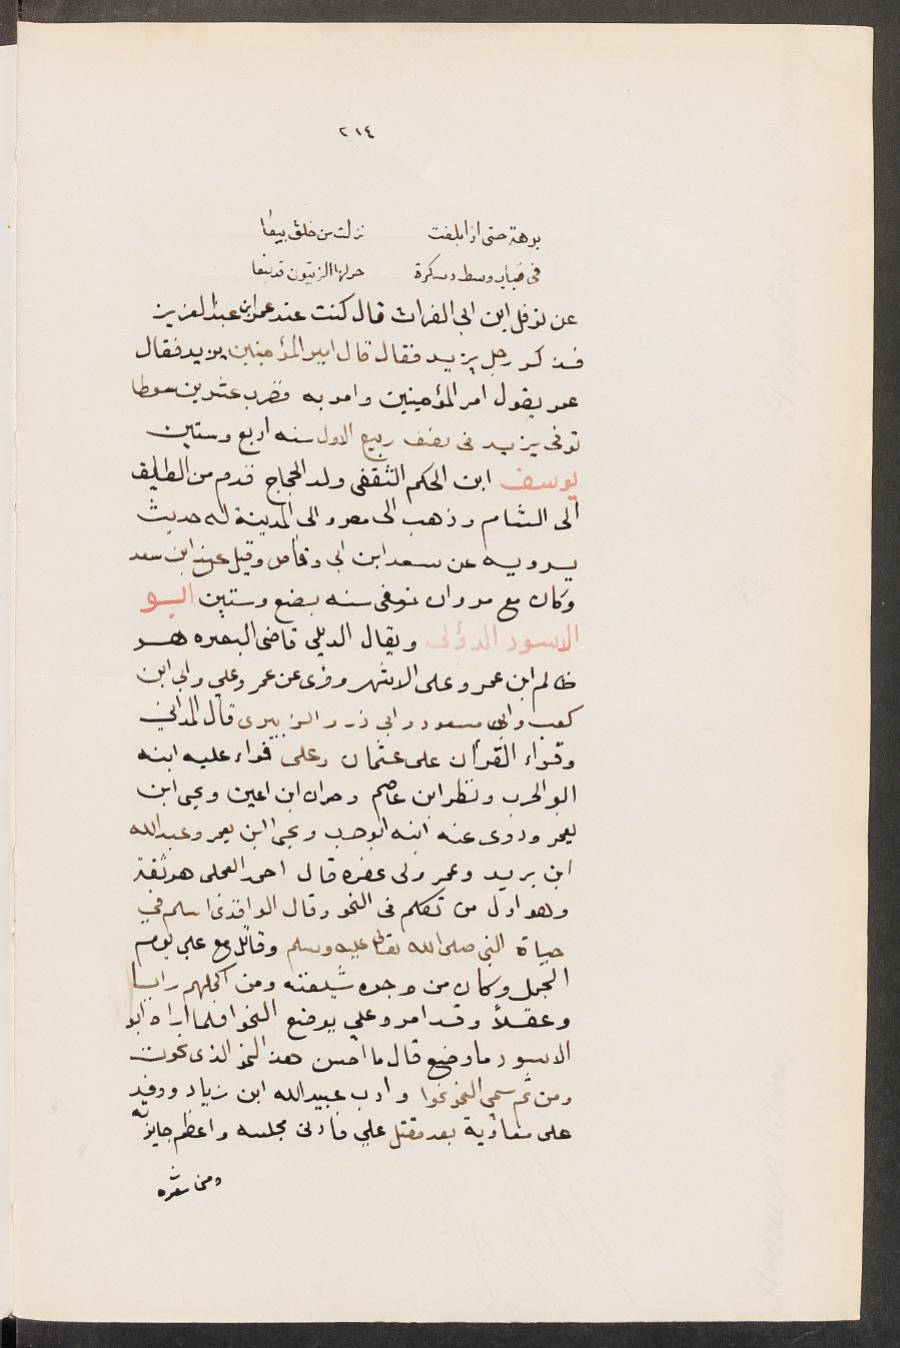 ٢١٤
برهة حتى اذا بلغت نزلت من خلق بيعا
فى قباب وسط دسكرة حولها الزيتون قد ينعا
عن نوفل ابن ابى الفرات قال كنت عند عمر ابن عبد العزيز
فذكر رجل يزيد فقال قال امير المؤمنين يزيد فقال
عمر يقول امر المؤمينين وامر به فضرب عشرين سوطا
توفى يزيد فى نصف ربيع الاول سنه اربع وستين
يوسف ابن الحكم الثقفى ولد الحجاج قدم من الطايف
الى الشام وذهب الى مصر والى المدينة له حديث
يرويه عن سعد ابن ابى وقاص وقيل عن ابن سعد
وكان مع مروان توفى سنه بضع وستين ابو
الاسود الدؤلى ويقال الديلى قاضى البصره هو
ظالم ابن عمر وعلى الاشهر وروى عن عمر وعلي وابى ابن
كعب وابى مسعود وابى ذر والزبيرى قال الدانى
وقراء القرأن على عثمان وعلى قراء عليه ابنه
ابو الحرب ونظر ابن عاصم وحمران ابن اعين ويحى ابن
يعمر وروى عنه ابنه ابو حرب ويحيى ابن يعمر وعبد الله
ابن بريد وعمر ولى عفره قال احمد العجلى هو ثقة
وهو اول من تكلم فى النحو وقال الواقدى اسلم في
حياة النبى صلى الله تعالى عليه وسلم وقاتل مع علي يوم
الجمل وكان من وجوه شيعته ومن اكملهم رايا
وعقلاً وقد امره علي بوضع النحو فلما اراه ابو
الاسود ما وضع قال ما احسن هذا النحو الذى نحوت
ومن ثم سمى النحو نحوا وادب عبيد الله ابن زياد ووفد
على معاوية بعد مقتل علي فادنى مجلسه واعظم جايزته
ومن شعره